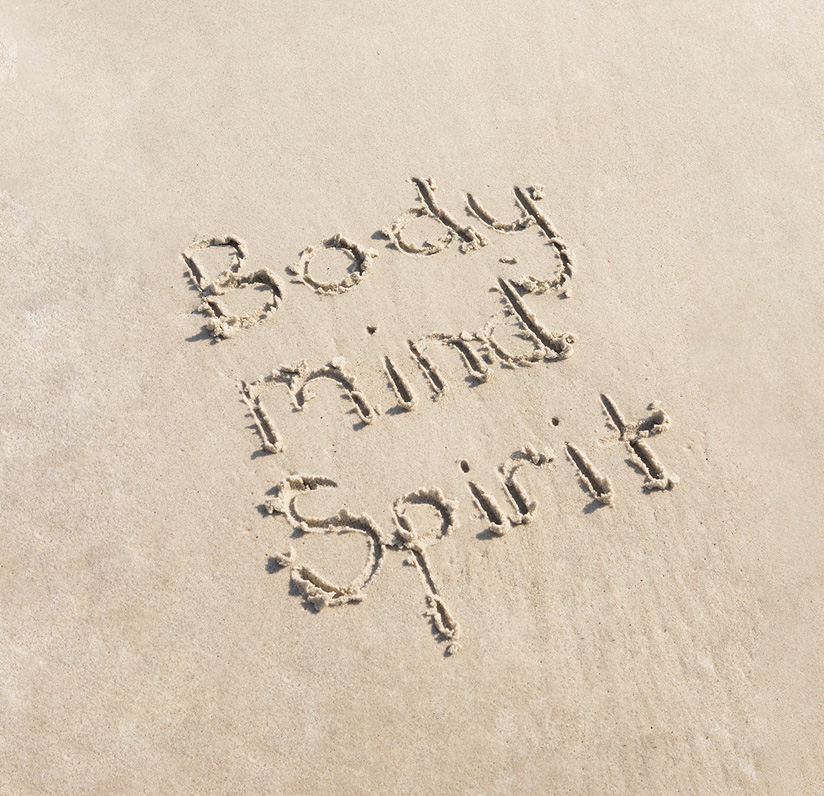 Body
mind
Spirit